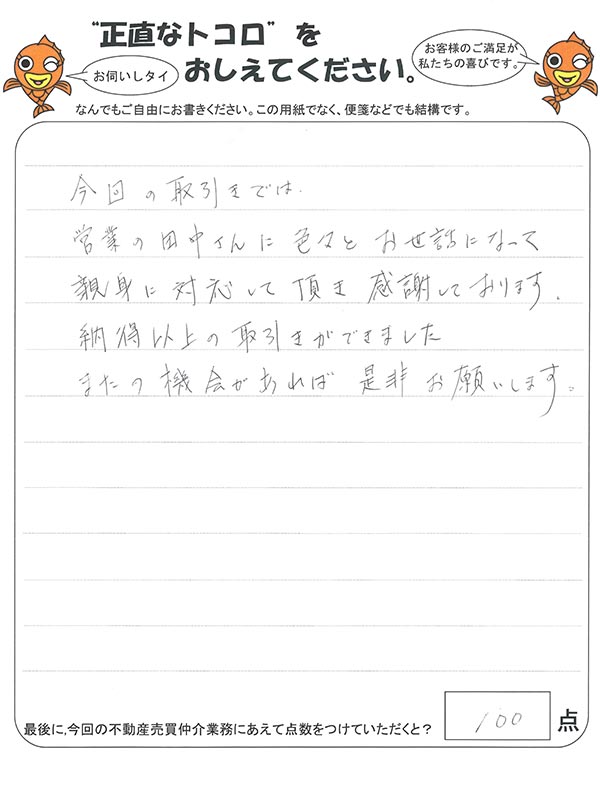 "正直なトコロ"を
おしえてください。
お伺いしタイ
お客様のご満足が
私たちの喜びです。
なんでもご自由にお書きください。この用紙でなく、便箋などでも結構です。
今回の取引きでは.
営業の田中さんに色々とお世話になって
親身に対応して頂き感謝しております.
納得以上の取引きができました
またの機会があれば是非お願いします。
最後に,今回の不動産売買仲介業務にあえて点数をつけていただくと?
100
点